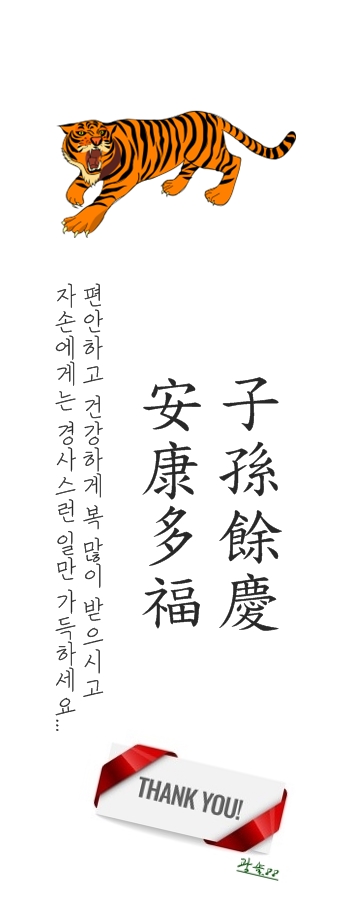 子孫餘慶
安康多福
편안하고 건강하게 복 많이 받으시고
자손에게는 경사스런 일만 가득하세요...
THANK YOU!